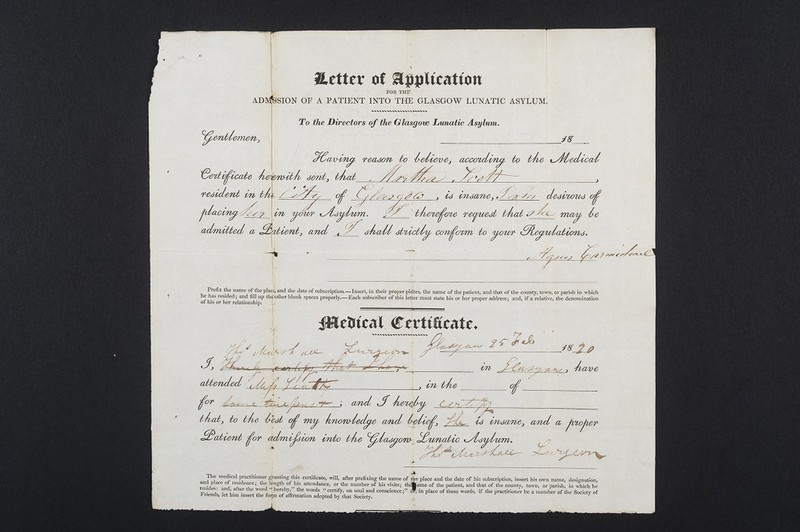 Letter of Application
FOR THE
ADMISSION OF A PATIENT INTO THE GLASGOW LUNATIC ASYLUM.
To the Directors of the Glasgow Lunatic Asylum.
Gentlemen, 18
Having reason to believe, according to the Medical
Certificate herewith sent, that Martha Scott,
resident in the City of Glasgow, is insane, desirous of
placing her in your Asylum. I therefore request that she may be
admitted a Patient, and I shall strictly conform to your Regulations.
Agnes Carmichael
Prefix the name of the place, and the date of subscription.—Insert, in their proper places, the name of the patient, and that of the county, town, or parish in which
he has resided; and fill up the other blank spaces properly.—Each subscriber of this letter must state his or her proper address; and, if a relative, the denomination
of his or her relationship.
Medical Certificate.
Thos Marshall Surgeon Glasgow 25 Feb 1820
I, in Glasgow, have
attended Miss Scott, in the of
for some time past; and I hereby certify
that, to the best of my knowledge and belief, she is insane, and a proper
Patient for admission into the Glasgow Lunatic Asylum.
Thos Marshall Surgeon
The medical practitioner granting this certificate, will, after prefixing the name of the place and the date of his subscription, insert his own name, designation,
and place of residence; the length of his attendance, or the number of his visits; the name of the patient, and that of the county, town, or parish, in which he
resides: and, after the word "hereby," the words "certify, on soul and conscience;" or, in place of these words, if the practitioner be a member of the Society of
Friends, let him insert the form of affirmation adopted by that Society.